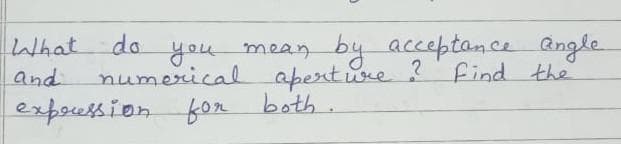 What do you mean by acceptance angle
and numerical aperture ? Find the
expression for both .